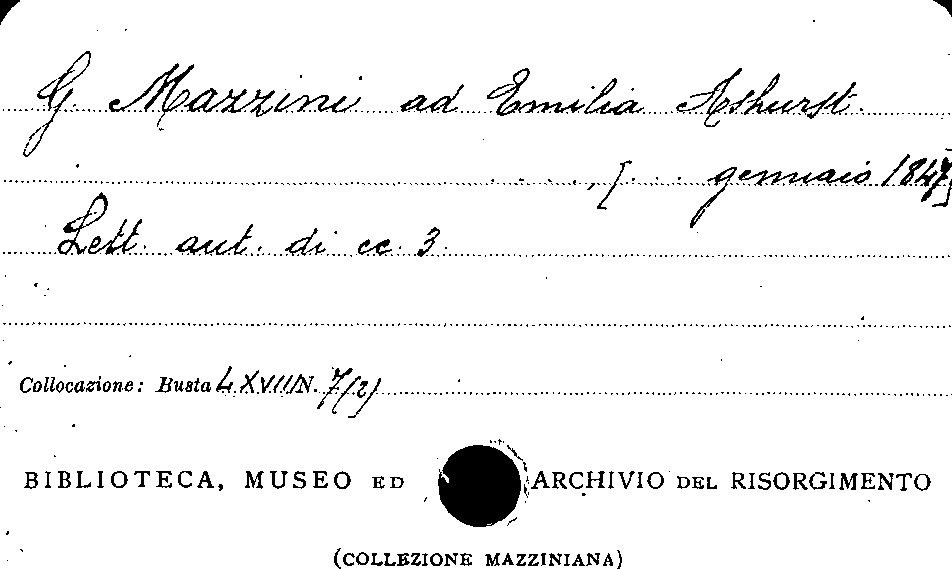 G. Mazzini ad Emilia Ashurst.
...., [... gennaio 1847]
Lett. aut. di cc. 3.
Collocazione: Busta LXVIII N. 7(2)
BIBLIOTECA, MUSEO ED ARCHIVIO DEL RISORGIMENTO
(COLLEZIONE MAZZINIANA)